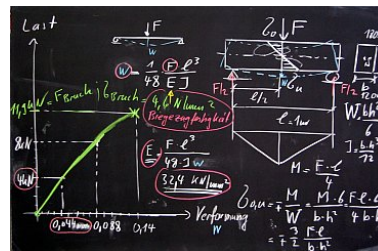 Last
F
w = 1/48 F·l³/EJ
11,34 kN = F Bruch ; σ Bruch = 4,6 N/mm²
Biegezugfestigkeit
8 kN
4 kN
E = F·l³/48·J w
32,4 kN/mm²
0,044 mm 0,088 0,14 Verformung
w
F
σo
w
F/2 σu F/2
l/2
l = 1m
M = F·l/4
σo,u = ∓ M/W = ∓ M·6/b·h²
= ∓ 3/2 F·l/b·h²